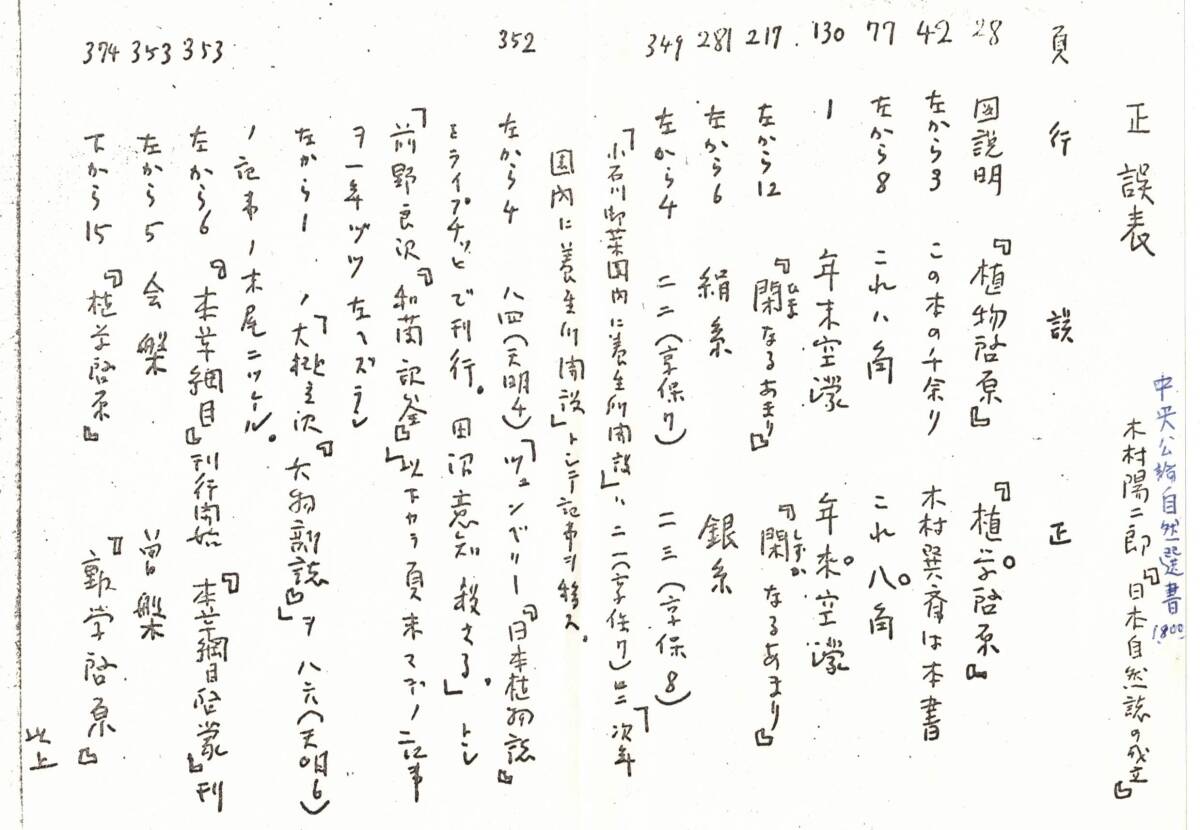 中央公論自然選書 1800
木村陽二郎『日本自然誌の成立』
正誤表
頁 行 誤 正
28 図説明 『植物啓原』 『植学啓原』
42 左から3 この本の千余り 木村巽斎は本書
77 左から8 これハ角 これ八角
130 1 年末空濛 年来空濛
217 左から12 『閑なるあまり』 『閑なるあまり』
ひま しずか
281 左から6 絹糸 銀糸
349 左から4 二二(享保7) 二三(享保8)
「小石川御薬園内に養生所開設」ハ二二(享保7)ニ「次年
園内に養生所開設」トシテ記事ヲ移ス。
352 左から4 八四(天明4)「ツュンベリー『日本植物誌』
をライプチッヒで刊行。田沼意知殺さる。」トシ
「前野良沢『和蘭訳筌』」以下カラ頁末マデノ記事
ヲ一年ヅツ左ヘズラシ
353 左から1 ノ「大槻玄沢『六物新誌』」ヲ八六(天明6)
ノ記事ノ末尾ニツケル。
353 左から6 『本草綱目』刊行開始 『本草綱目啓蒙』刊
353 左から5 会槃 曽槃
374 下から15 『植学啓原』 『
学啓原』
以上